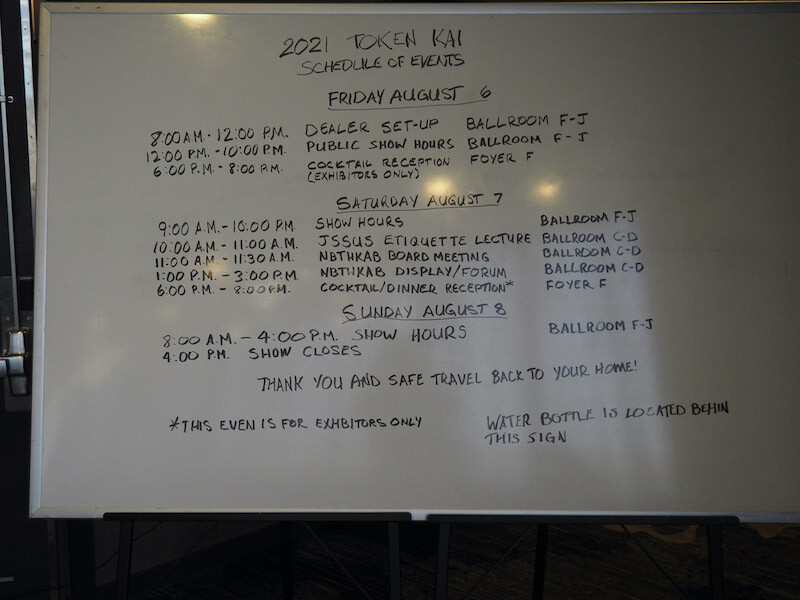 2021 TOKEN KAI
SCHEDULE OF EVENTS
FRIDAY AUGUST 6
8:00 A.M. - 12:00 P.M. DEALER SET-UP BALLROOM F-J
12:00 P.M. - 10:00 P.M. PUBLIC SHOW HOURS BALLROOM F-J
6:00 P.M. - 8:00 P.M. COCKTAIL RECEPTION FOYER F
(EXHIBITORS ONLY)
SATURDAY AUGUST 7
9:00 A.M. - 10:00 P.M. SHOW HOURS BALLROOM F-J
10:00 A.M. - 11:00 A.M. JSSUS ETIQUETTE LECTURE BALLROOM C-D
11:00 A.M. - 11:30 A.M. NBTHKAB BOARD MEETING BALLROOM C-D
1:00 P.M. - 3:00 P.M. NBTHKAB DISPLAY/FORUM BALLROOM C-D
6:00 P.M. - 8:00 P.M. COCKTAIL/DINNER RECEPTION* FOYER F
SUNDAY AUGUST 8
8:00 A.M. - 4:00 P.M. SHOW HOURS BALLROOM F-J
4:00 P.M. SHOW CLOSES
THANK YOU AND SAFE TRAVEL BACK TO YOUR HOME!
*THIS EVEN IS FOR EXHBITORS ONLY
WATER BOTTLE IS LOCATED BEHIN
THIS SIGN